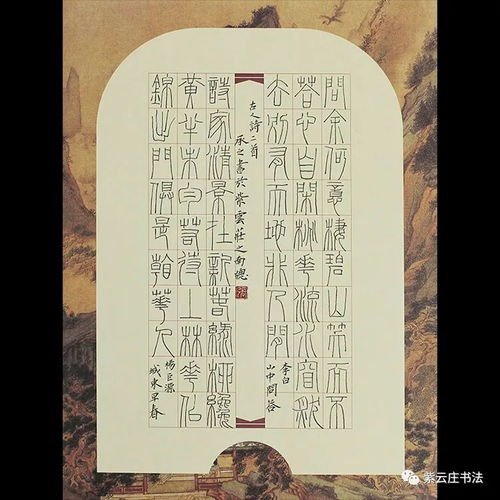 問余何意棲碧山笑而不
答心自閑桃華流水窅然
去別有天地非人間
李白
山中問答
古人詩二首
承之書於紫雲莊之南窻
詩家清景在新萅綠柳纔
黃半未勻若待上林華佀
錦出門俱是看華人
楊巨源
城東早春
紫云庄书法